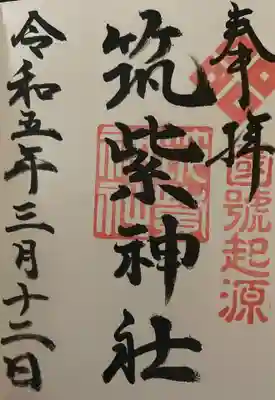 奉拝
國號起源
筑紫神社
令和五年三月十二日